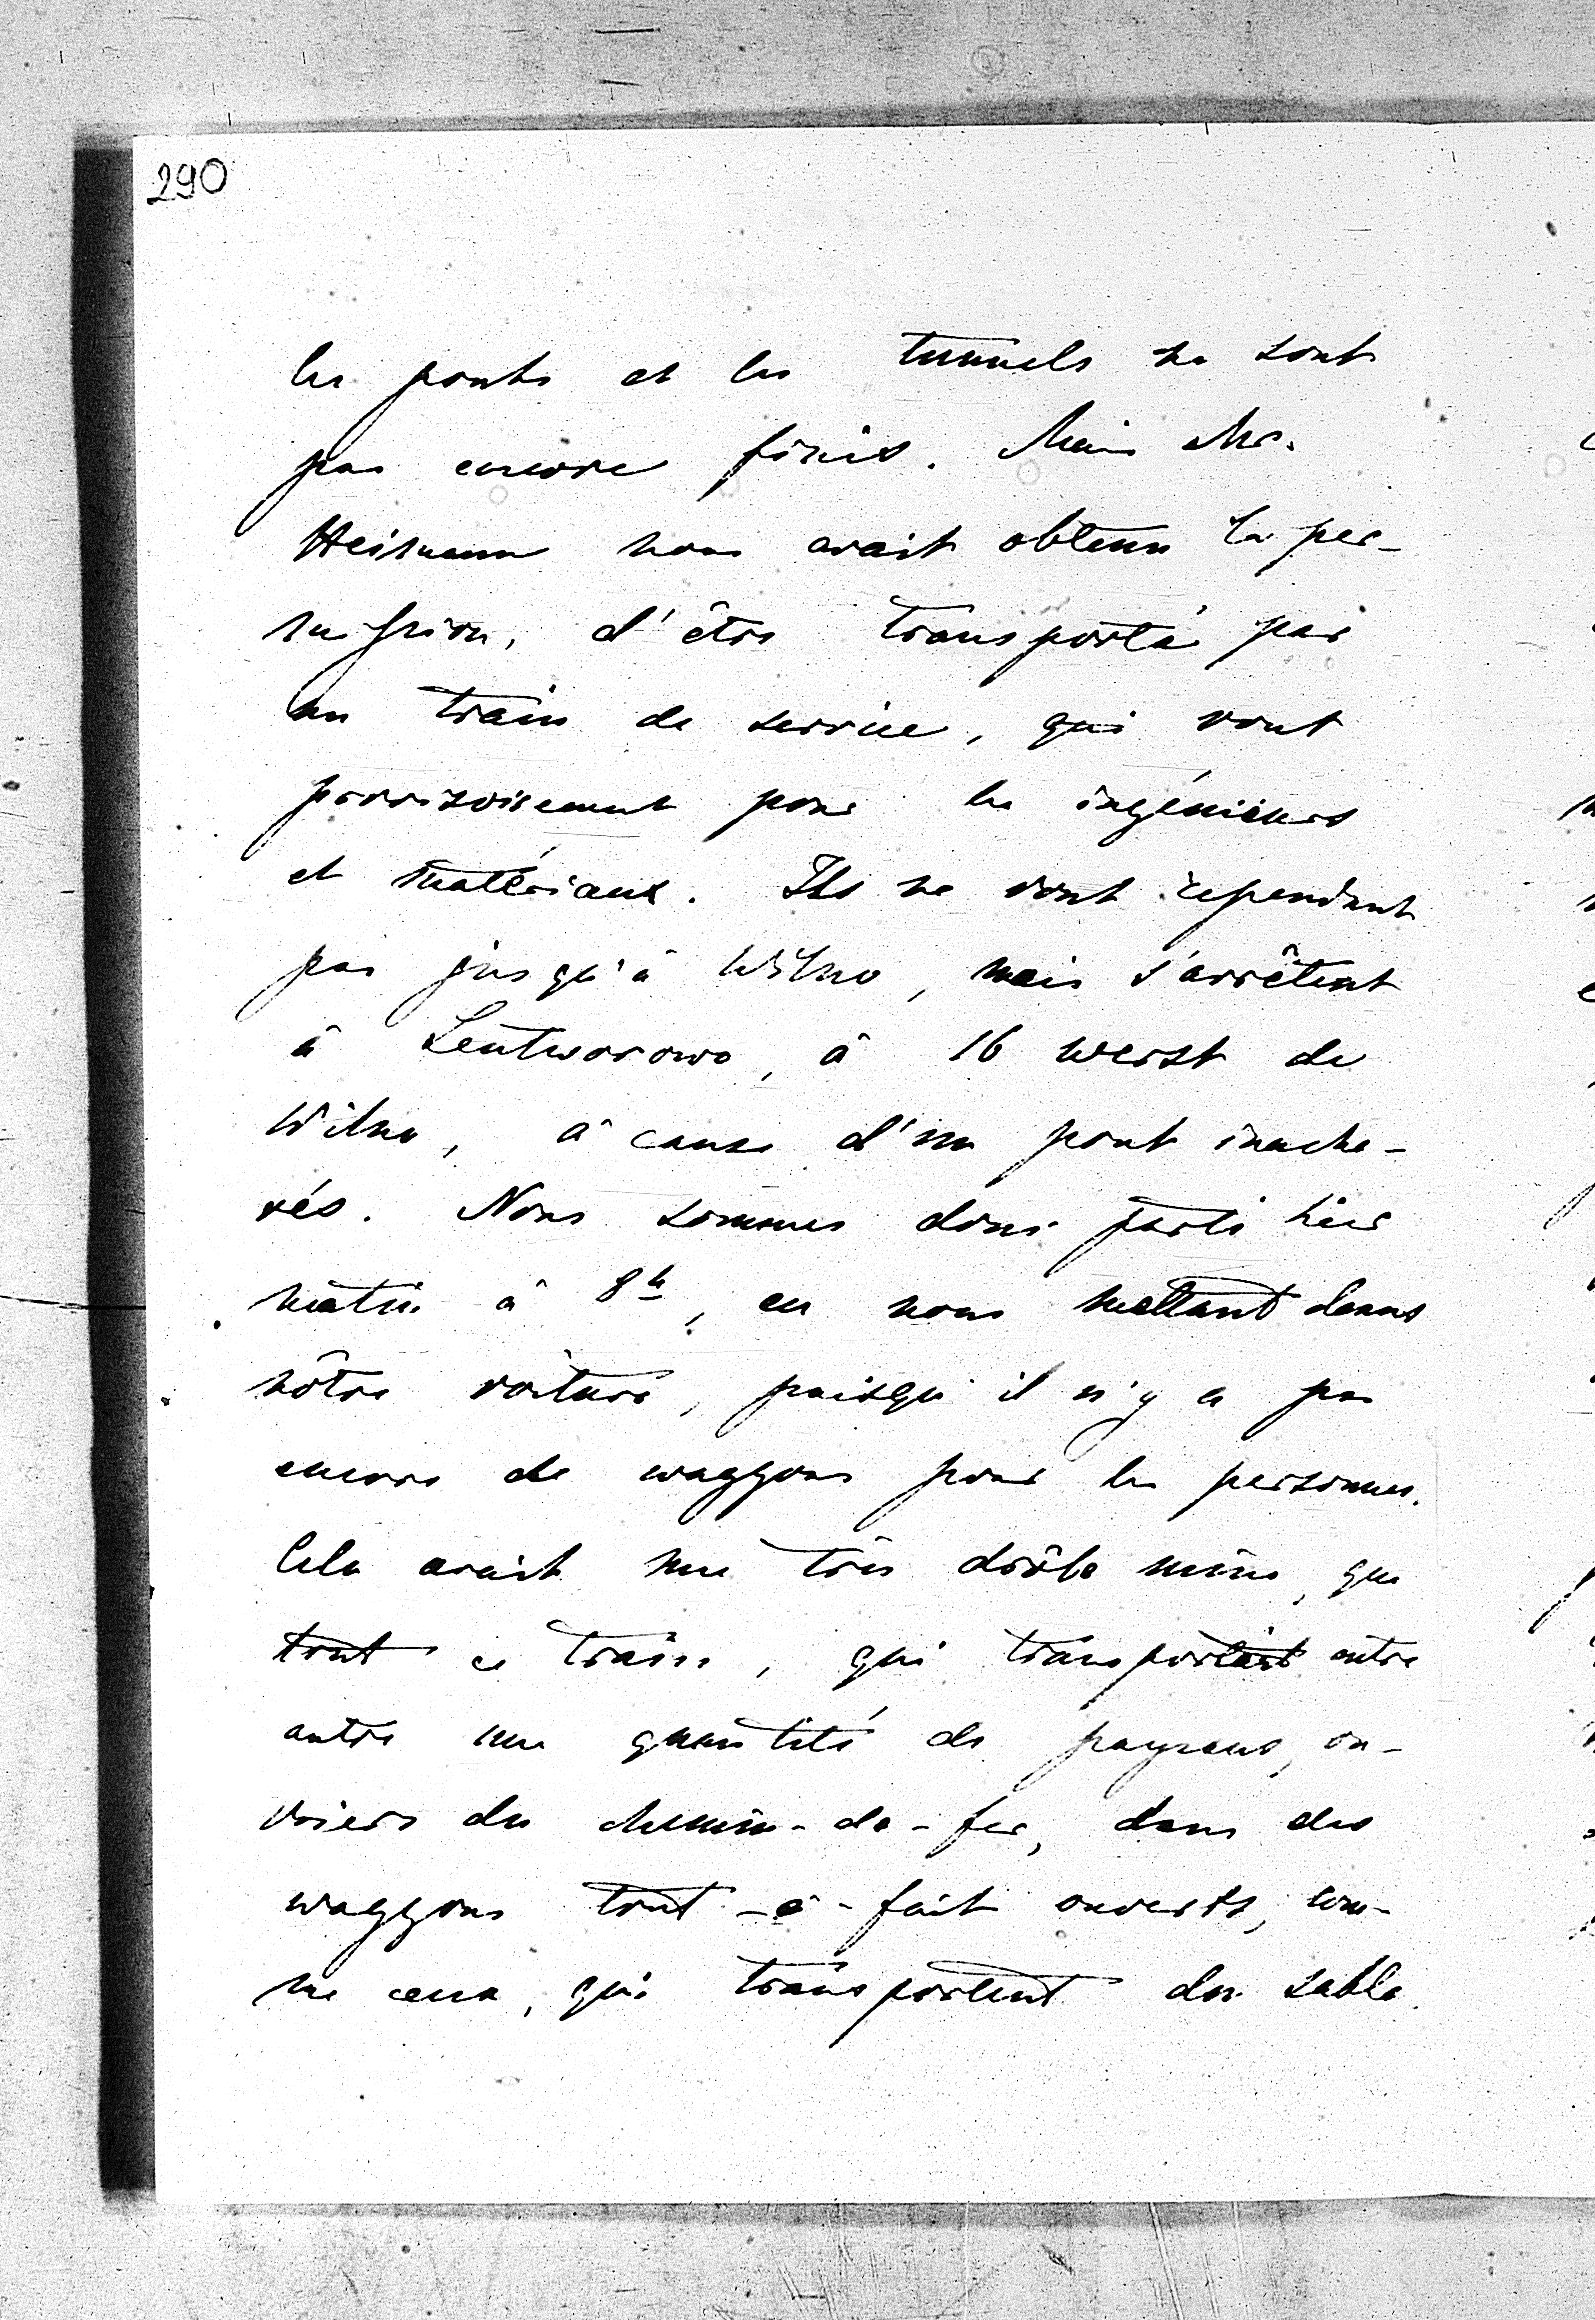 290
les ponts et les tunnels ne sont
pas encore finis. Mais Mr.
Heimann nous avait obtenu la per-
mission, d'être transporté par
un train de service, qui vont
provisoirement pour les ingénieurs
et matériaux. Ils ne vont cependant
pas jusqu'à Wilno, mais s'arrêtent
à Lentworowo, à 16 werst de
Wilno, à cause d'un pont inache-
vés. Nous sommes donc parti hier
matin à 8h, en nous mettant dans
nôtre voiture, puisqu'il n'y a pas
encore de waggons pour les personnes.
Cela avait une très drôle mine, que
tout ce train, qui transportait entre
autre une quantité de paysans, ou-
vriers du chemin-de-fer, dans des
waggons tout-à-fait ouverts, com-
me ceux, qui transportent du sable.